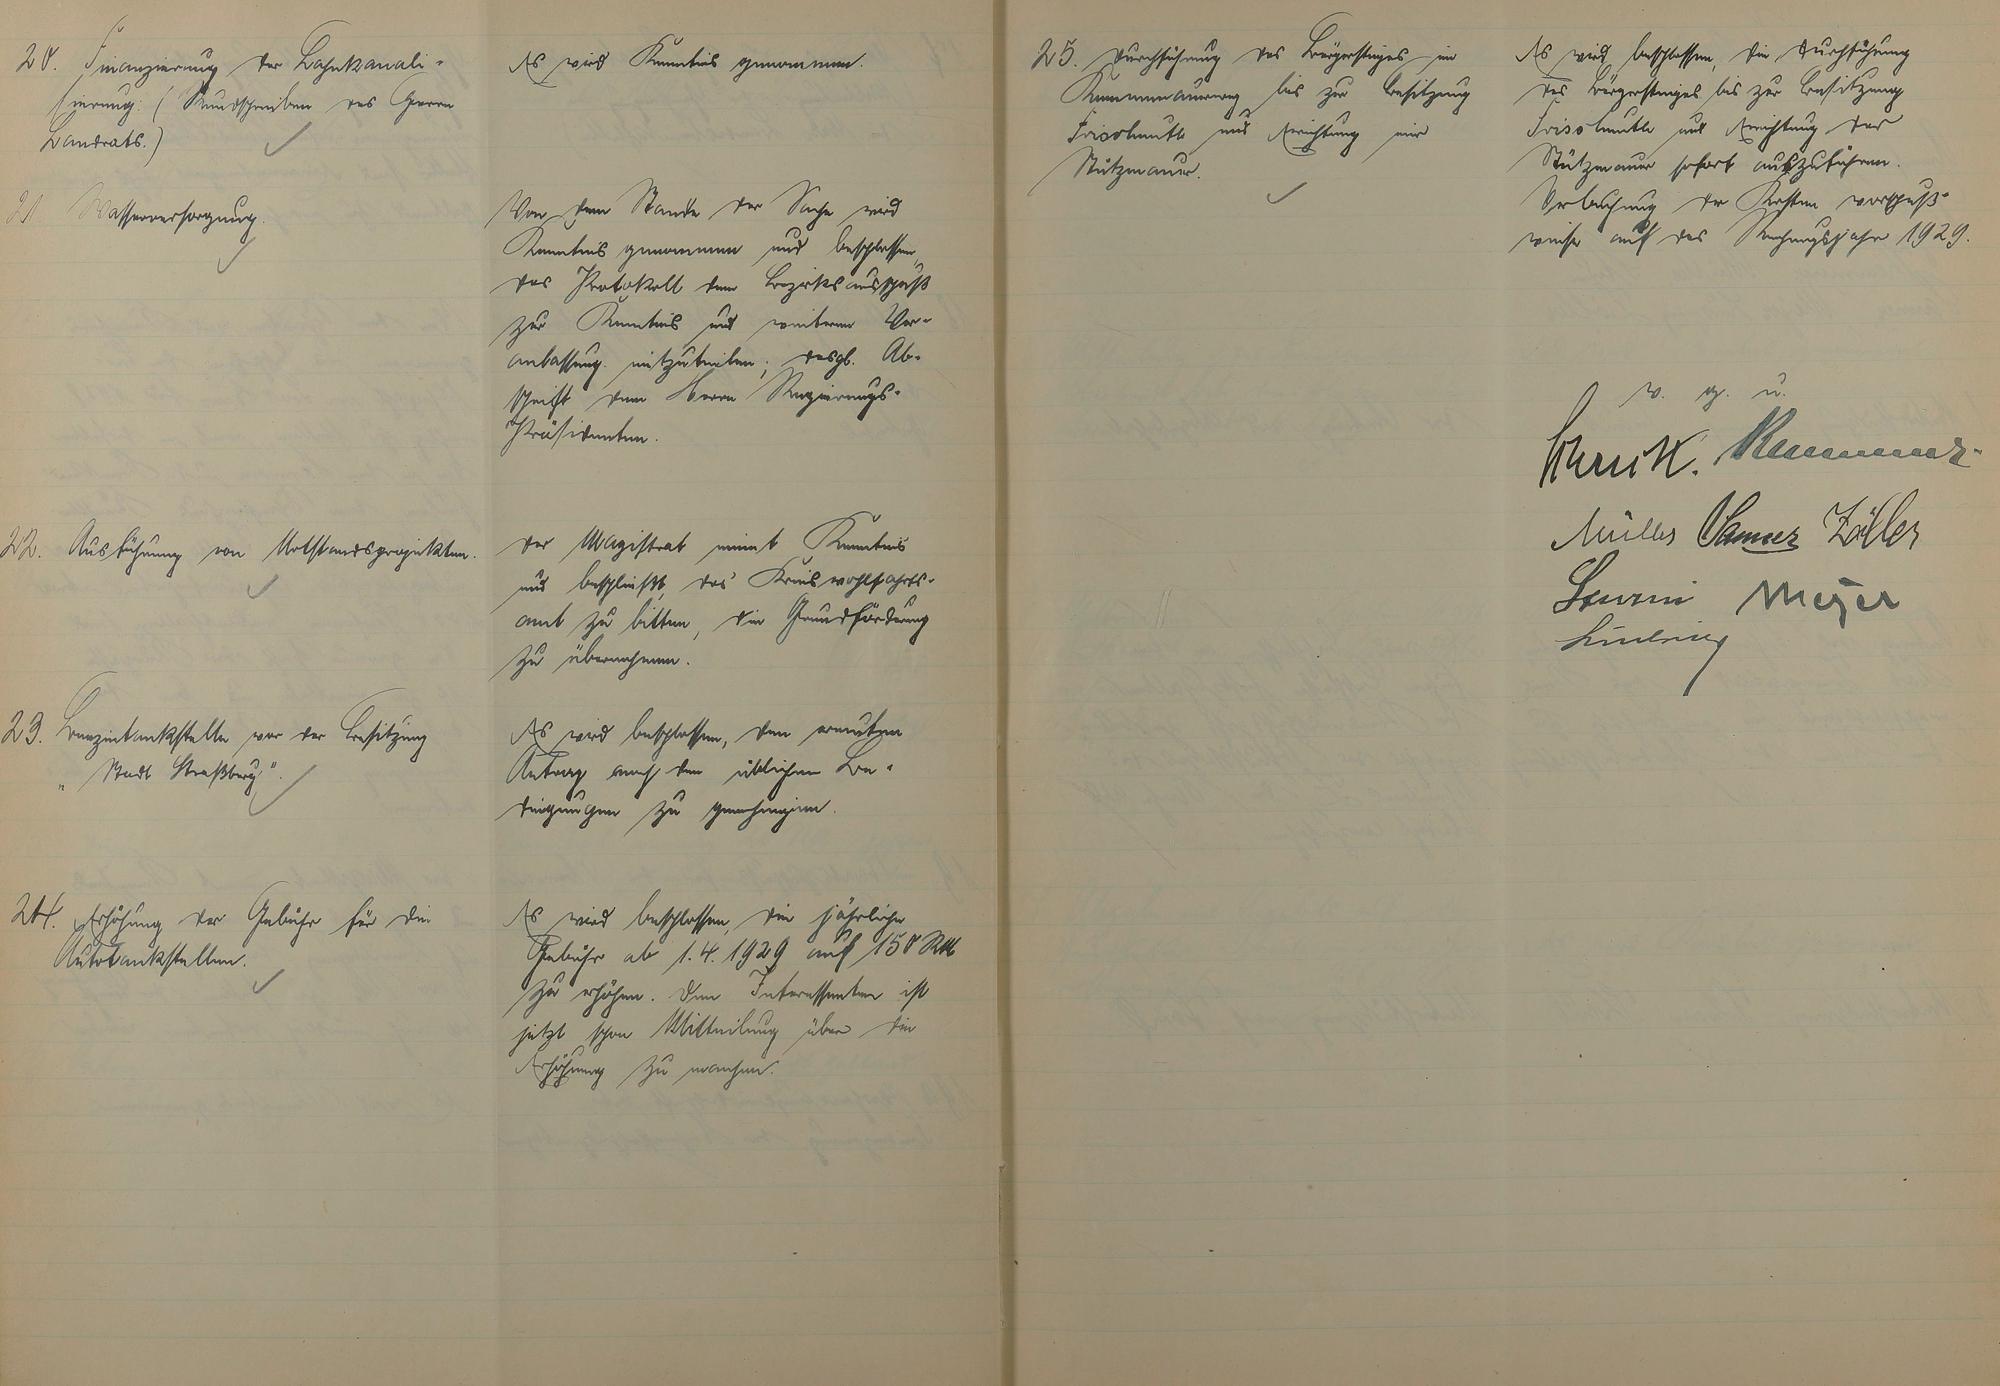 20. Finanzierung der Lahnkanali-
sierung. (Rundschreiben des Herrn
Landrats.)
Es wird Kenntnis genommen.
21. Wasserversorgung.
Von dem Stande der Sache wird
Kenntnis genommen und beschlossen,
das Protokoll dem Bezirksausschuß
zur Kenntnis und weiteren Ver-
anlassung mitzuteilen; desgl. Ab-
schrift dem Herrn Regierungs-
Präsidenten.
22. Ausführung von Notstandsprojekten.
Der Magistrat nimmt Kenntnis
und beschließt, das Kreiswohlfahrts-
amt zu bitten, die Grundförderung
zu übernehmen.
23. Benzintankstelle vor der Besitzung
"Stadt Straßburg".
Es wird beschlossen, den erneuten
Antrag nach den üblichen Be-
dingungen zu genehmigen.
24. Erhöhung der Gebühr für die
Autotankstellen.
Es wird beschlossen, die jährliche
Gebühr ab 1.4.1929 auf 150 RM
zu erhöhen. Den Interessenten ist
jetzt schon Mitteilung über die
Erhöhung zu machen.
25. Durchführung des Bürgersteiges im
bis zur Besitzung
und Errichtung einer
Stützmauer.
Es wird beschlossen, die Durchführung
des Bürgersteiges bis zur Besitzung
und Errichtung der
Stützmauer sofort auszuführen.
Verbuchung der Kosten vorschuß-
weise auf das Rechnungsjahr 1929.
v. g. u.
Müller Zöller
Meyer